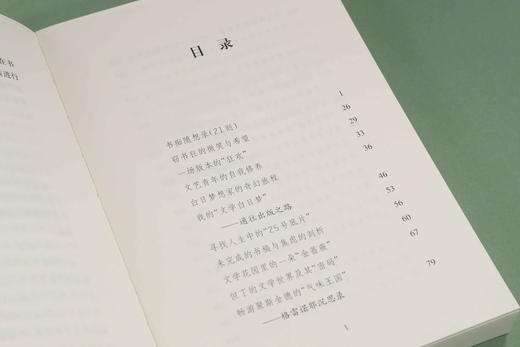 在书
进行
目录
书痴随想录(21则) 1
窃书狂的微笑与希望 26
一场版本的“狂欢” 29
文艺青年的自我修养 33
白日梦想家的奇幻旅程 36
我的“文学白日梦”
——通往出版之路 46
寻找人生中的“25号底片” 53
未完成的书稿与焦虑的剖析 56
文学花园里的一朵“金蔷薇” 60
但丁的文学世界及其“密码” 67
畅游聚斯金德的“气味王国”
——格雷诺耶沉思录 79
1